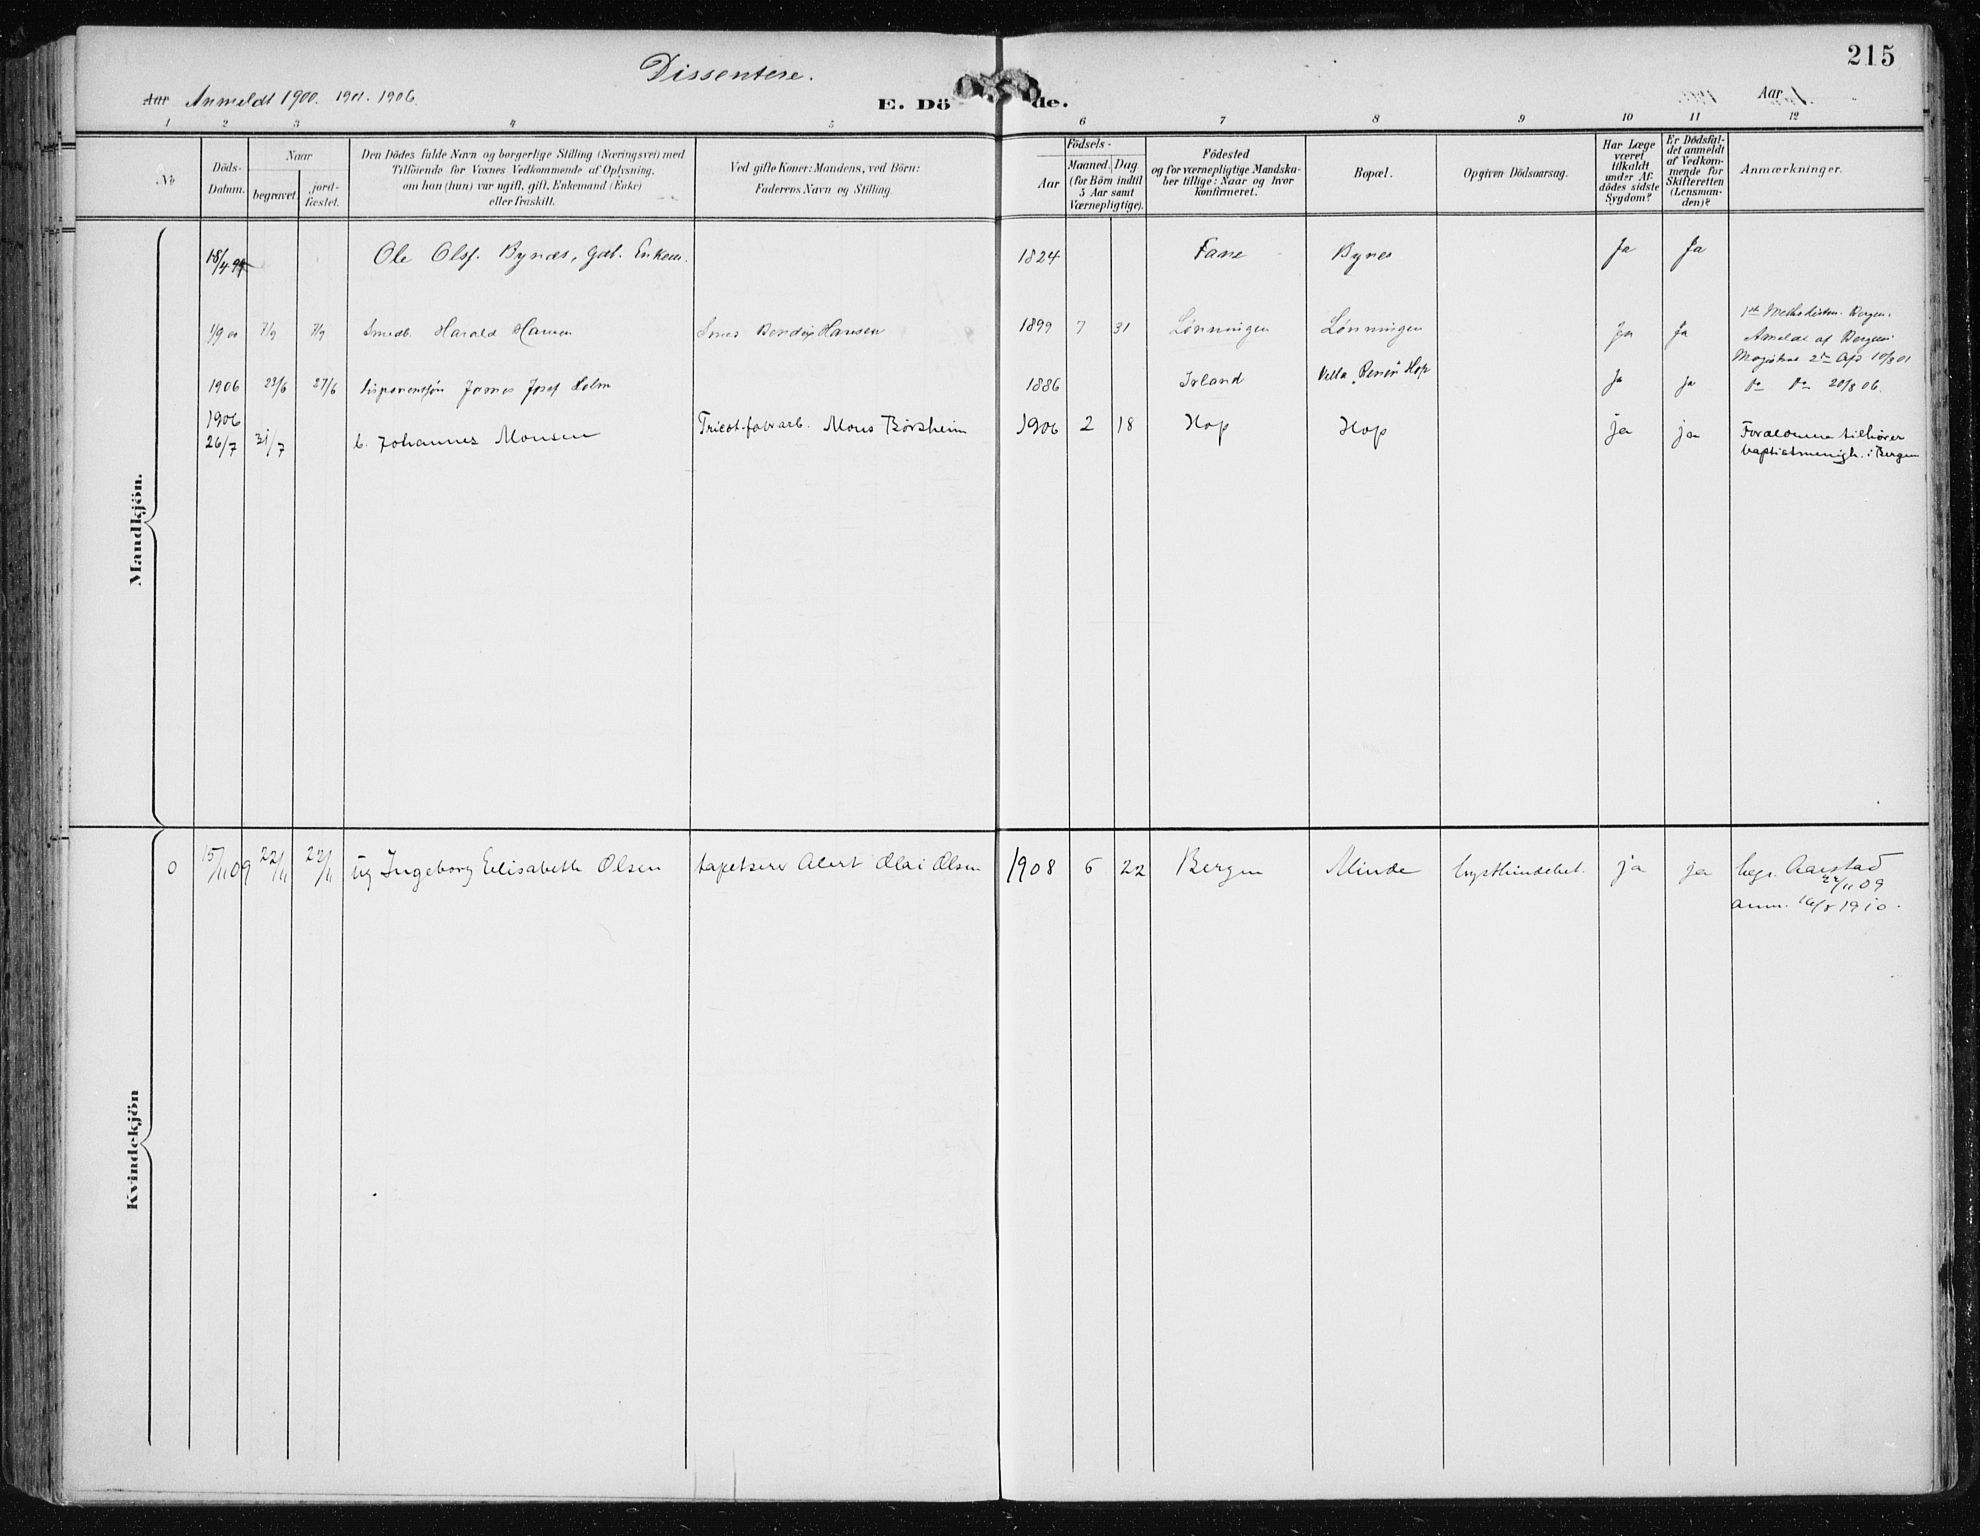 215
Dissentere.
Aar Anmeldt 1900. 1901. 1906.
E. Dö de.
Aar
1 2 3 4 5 6 7 8 9 10 11 12
No
Döds-Datum.
Naar
begravet.
jord-fæstet.
Den Dödes fulde Navn og borgerlige Stilling (Næringsvei) med
Tilföiende for Voxnes Vedkommende af Oplysning,
om han (hun) var ugift, gift, Enkemand (Enke)
eller fraskilt.
Ved gifte Koner: Mandens, ved Börn:
Faderens Navn og Stilling.
Födsels-
Aar
Maaned. Dag
(for Börn indtil
5 Aar samt
Værnepligtige).
Födested
og for værnepligtige Mandska-
ber tillige: Naar og hvor
konfirmeret.
Bopæl.
Opgiven Dödsaarsag.
Har Læge
været
tilkaldt
under Af-
dödes sidste
Sygdom?
Er Dödsfal-
det anmeldt
af Vedkom-
mende for
Skifteretten
(Lensman-
den)?
Anmærkninger.
Mandkjön.
18/4 99 Ole Olsf. Bynæs, Gdb. Enkem. 1824 Fane Bynes Ja Ja
1/9 00 7/9 7/9 Smedb. Harald Hansen Smed Bendix Hansen 1899 7 31 Lönningen Lönningen Ja Ja
1st Methodistm. Bergen.
Anmeldt af Bergens
Magistrat 2den Afd 10/8 01
1906 23/6 27/6 James Josef Holm 1886 Irland Villa Hop Ja ja Do Do 20/8 06.
1906
26/7 31/7 b. Johannes Monsen Tricotfabrarb. Mons Børsheim 1906 2 18 Hop Hop ja ja Forældrene tilhører
baptistmenigh. i Bergen
Kvindekjön
0 15/11 09 22/11 22/11 ug Ingeborg Elisabeth Olsen tapetserer Alert Olai Olsen 1908 6 22 Bergen Minde brysthindebet. ja ja begr. Aarstad
22/11 09
anm. 16/8 1910.